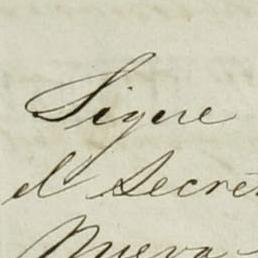 Sigue
el Secre
Nueva